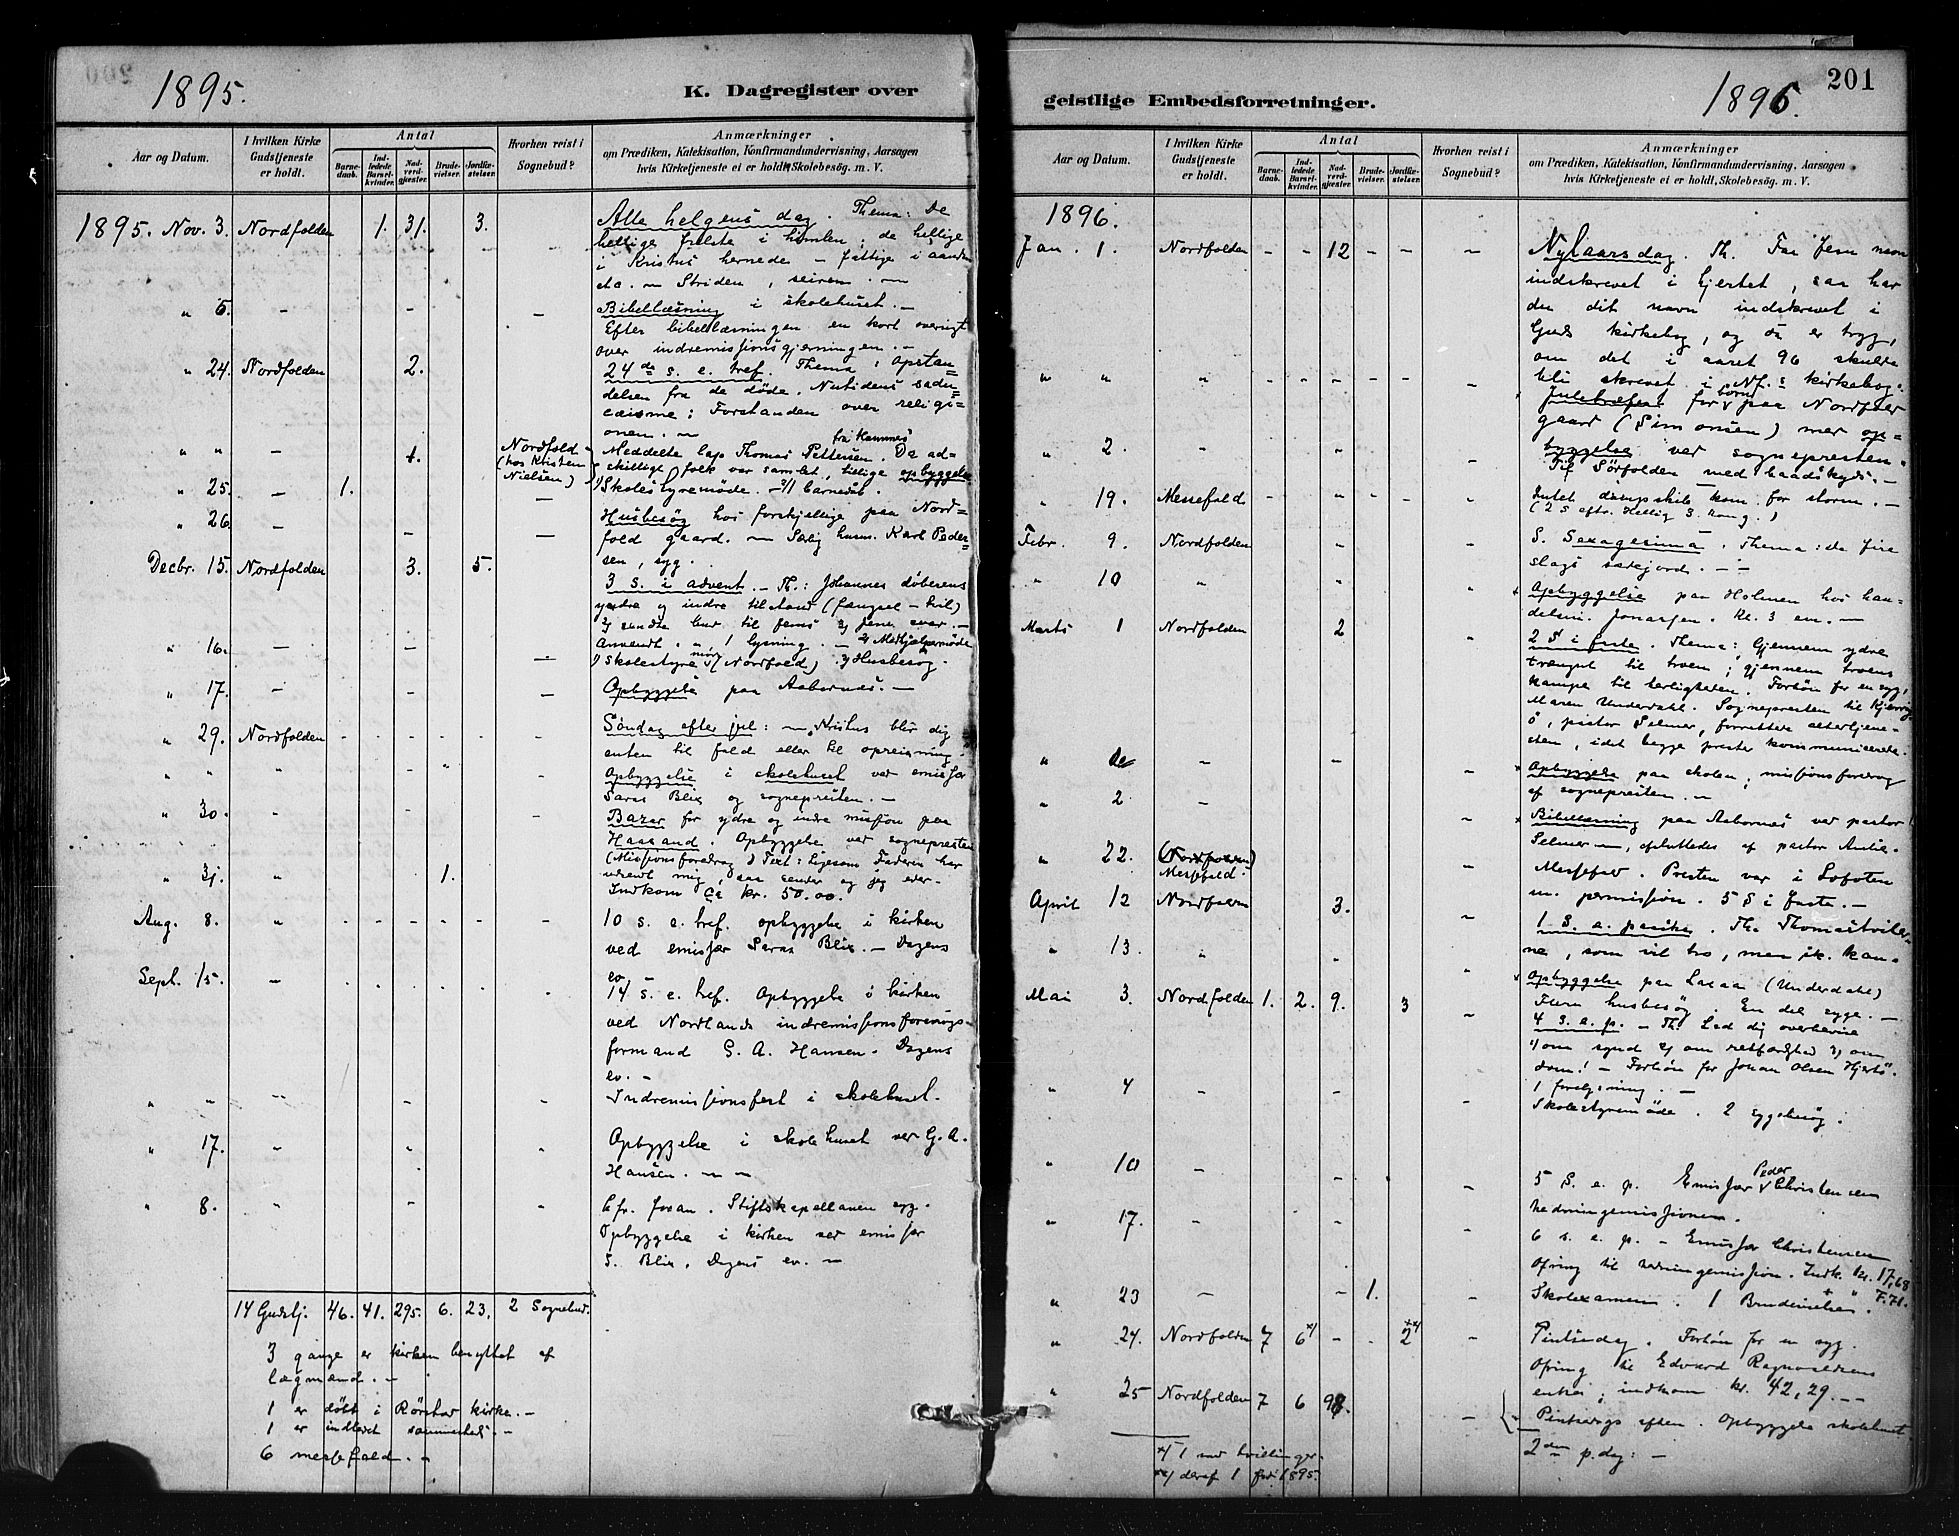 1895.
K. Dagregister over
Aar og Datum.
I hvilken Kirke Gudstjeneste er holdt.
Antal
Barnedaab.
Indledede Barselkvinder.
Nadverdgjester.
Brudevielser.
Jordfæstelser.
Hvorhen reist i Sognebud?
Anmærkninger
om Prædiken, Katekisation, Konfirmandundervisning, Aarsagen
hvis Kirketjeneste ei er holdt, Skolebesög. m. V.
1895. Nov. 3. Nordfolden 1. 31. 3. Alle helgens dag. Thema: De
hellige frelste i himlen; de hellige
i Kristus hernede – fattige i aanden
eta. – Striden, seiren. –
" 5. – – – Bibellæsning i skolehuset. –
Efter bibellæsningen en kort oversigt
over indremissjonsgjerningen. –
" 24. Nordfolden 2. 24de s. e. tref. Thema: Opstan-
delsen fra de døde. Nutidens sadu-
cæisme: Forstanden over religi-
onen. –
" " – 1. Nordfold (hos Kristen Nielsen) Meddelte lap Thomas Pettersen fra Hamnes. Da ad-
skillige folk var samlet, tillige opbyggelse
" 25. – 1. – 1) Skolestyremøde. – 2) 1 barnedåb.
" 26. – – – Husbesøg hos forskjellige paa Nord-
fold gaard. – Særlig husm. Karl Peder-
sen, syg.
Decbr. 15. Nordfolden 3. 5. 3 s. i advent. – Th.: Johannes døberens
ydre og indre tilstand (fængsel – tvil)
2) sendte bud til Jesus 3) Jesu svar. –
Anvendt. 1 lysning. –
" 16. – – – 1) Skolestyremöde (Nordfold) 2) Medhjælpermöde 3) Husbesøg.
" 17. – – – Opbyggelse paa Aabornes. –
" 29. Nordfolden Søndag efter jul: – Kristus blir dig
enten til fald eller til opreisning.
" " " Opbyggelse i skolehuset ved emissær
Saras Blix og sognepresten. –
" 30. " Bazar for ydre og indre missjon paa
Hassand. Opbyggelse ved sognepresten
(Missionsforedrag) Text: Ligesom Faderen har
udsendt mig, saa sender og jeg eder.
" 31. " 1. Indkom ca kr. 50.00.
Aug. 8. " 10 s. e. tref. opbyggelse i kirken
ved emissær Saras Blix. – Dagens
ev. –
Sept. 15. – 14 s. e. tref. Opbyggelse i kirken
ved Nordlands indremissjonsforenings-
formand G. A. Hansen. Dagens
ev. –
" " " Indremissjonsfest i skolehuset.
" 17. " Opbyggelse i skolehuset ved G. A.
Hansen. – –
" 8. " Cfr. foran. Stiftskapellanen syg.
Opbyggelse i kirken ved emissær
S. Blix. Dagens ev. –
14 Gudstj. 46. 41. 295. 6. 23. 2 Sognebud.
3 gange er kirken benyttet af
lægmænd. –
1 er døbt i Rörstad kirke. –
1 er indledet sammesteds. –
6 messefald. –
201
1896.
geistlige Embedsforretninger.
Aar og Datum.
I hvilken Kirke Gudstjeneste er holdt.
Antal
Barnedaab.
Indledede Barselkvinder.
Nadverdgjester.
Brudevielser.
Jordfæstelser.
Hvorhen reist i Sognebud?
Anmærkninger
om Prædiken, Katekisation, Konfirmandundervisning, Aarsagen
hvis Kirketjeneste ei er holdt, Skolebesög. m. V.
1896.
Jan. 1. Nordfolden – – 12 – – – Nytaarsdag. Th. Faa Jesu navn
indskrevet i hjertet, saa har
du dit navn indskrevet i
Guds kirkebog, og du er tryg,
om det i aaret 96 skulde
bli skrevet i Nf.s kirkebog.
" " " – – – – – – Juletræfest for børn paa Nordfold
gaard (Simonsen) med op-
byggelse ved sognepresten.
" 2. " Til Sørfolden med baadskyds. –
" 19. Messefald – – " " – " Intet dampskib kom for storm. –
(2 s. eftr. Hellig 3 kong.)
Febr. 9. Nordfolden S. Sexagesima. Thema: de fire
slags sædejord. – –
" 10 " Opbyggelse paa Holmen hos han-
delsm. Jonassen. Kl. 3 em. –
Marts 1 Nordfolden 2 2 S i faste. Thema: Gjennem ydre
trængsel til troen; gjennem troens
kampe til herligheden. Forbön for en syg,
Maren Underdahl. Sognepresten til Kjerring-
ö, pastor Selmer, forrettede altertjene-
sten, idet begge prester kommunicerede.
" " – Opbyggelse paa skolen; missjonsforedrag
af sognepresten. –
" 2 – Bibellæsning paa Aabornes ved pastor
Selmer –, afsluttedes af pastor
" 22. (Nordfolden) Messefald. Messefald. Presten var i Lofoten
m. permission. 5 S i faste. –
April 12 Nordfolden 3. 1. S. e. paaske. Th. Thomastvilerne,
som vil tro, men ik. kan. –
" 13. " Opbyggelse paa (Underdahl)
Flere husbesøg En del syge. –
Mai 3. Nordfolden 1. 2. 9. 3 4 S. e. p. – Th. Lad dig overbevise
1) om synd 2) om retfærdighed 3) om
dom! – Forbön for Johan Olsen Hjertö.
1 forelysning. –
" 4 – Skolestyremöde. 2 sygebesög.
" 10 – 5 S. e. p. Emissær Peder Christensen
hedningemissjonen.
" 17. – 6 s. e. p. – Emissær Christensen
Ofring til hedningemissjon. Indk. kr. 17,68
" 23 – 1. Skolexamen. 1 Brudevielse. F.71.
" 24. Nordfolden 7 6 *) – – 2 **) Pintsedag. Forbön for en syg.
Ofring til Edvard Ragnvaldsens
enke; indkom kr. 42,29. – –
" 25 Nordfolden 7 6 98. Pintsedags aften. Opbyggelse skolehuset
2den p. dag: –
*) 1 med tvillinger.
**) deraf 1 fød i 1895.